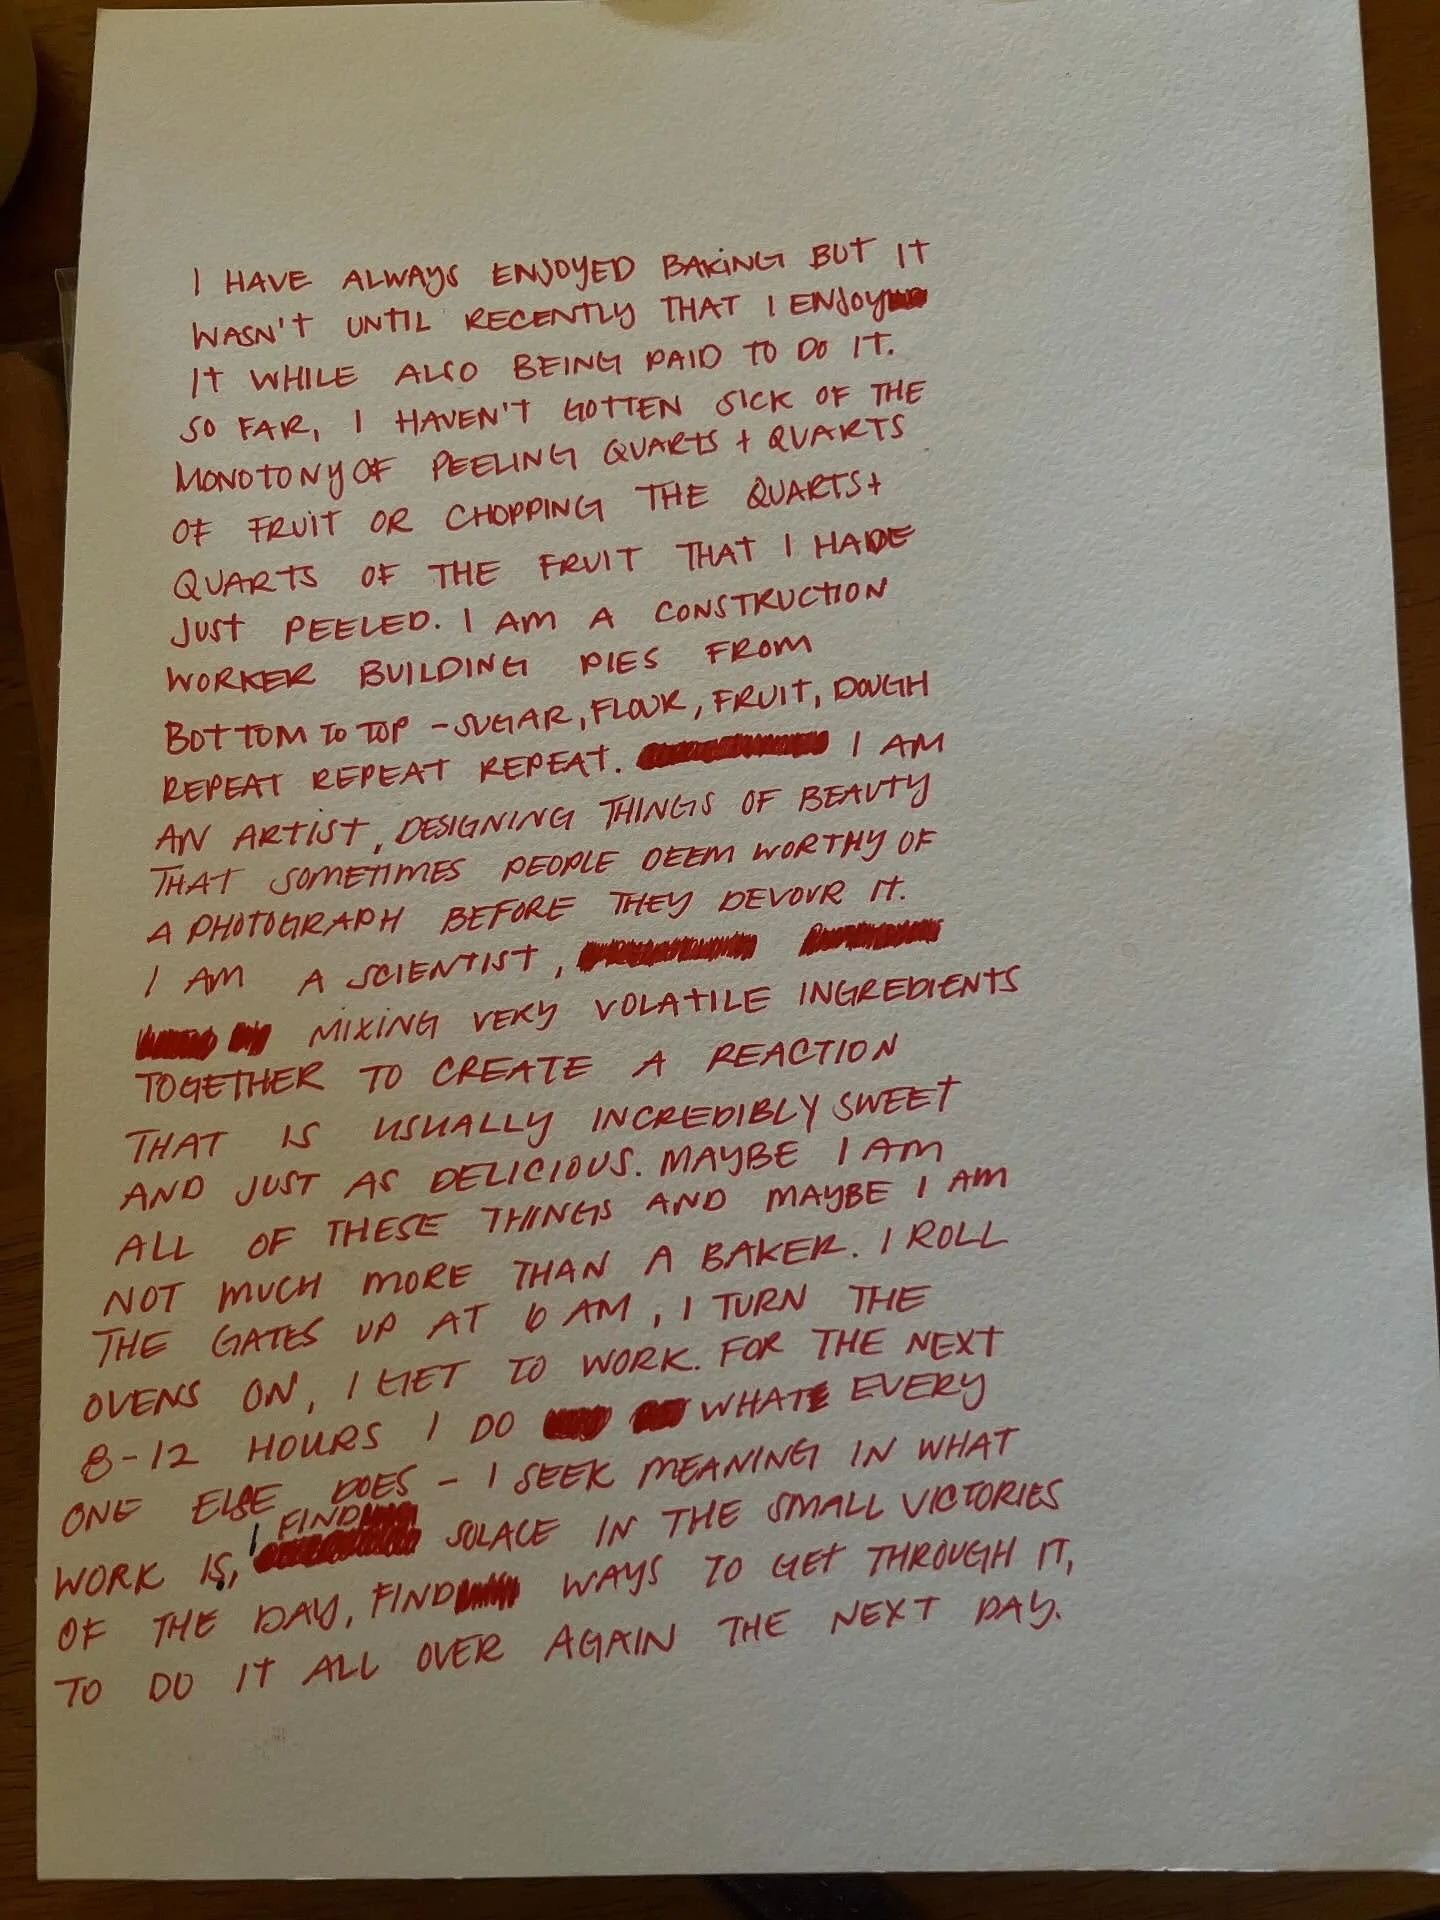 I HAVE ALWAYS ENJOYED BAKING BUT IT
WASN'T UNTIL RECENTLY THAT I ENJOY
IT WHILE ALSO BEING PAID TO DO IT.
SO FAR, I HAVEN'T GOTTEN SICK OF THE
MONOTONY OF PEELING QUARTS + QUARTS
OF FRUIT OR CHOPPING THE QUARTS +
QUARTS OF THE FRUIT THAT I HAD
JUST PEELED. I AM A CONSTRUCTION
WORKER BUILDING PIES FROM
BOTTOM TO TOP - SUGAR, FLOUR, FRUIT, DOUGH
REPEAT REPEAT REPEAT. I AM
AN ARTIST, DESIGNING THINGS OF BEAUTY
THAT SOMETIMES PEOPLE DEEM WORTHY OF
A PHOTOGRAPH BEFORE THEY DEVOUR IT.
I AM A SCIENTIST,
MIXING VERY VOLATILE INGREDIENTS
TOGETHER TO CREATE A REACTION
THAT IS USUALLY INCREDIBLY SWEET
AND JUST AS DELICIOUS. MAYBE I AM
ALL OF THESE THINGS AND MAYBE I AM
NOT MUCH MORE THAN A BAKER. I ROLL
THE GATES UP AT 6 AM, I TURN THE
OVENS ON, I GET TO WORK. FOR THE NEXT
8-12 HOURS I DO WHAT EVERY
ONE ELSE DOES - I SEEK MEANING IN WHAT
WORK IS, I FIND SOLACE IN THE SMALL VICTORIES
OF THE DAY, FIND WAYS TO GET THROUGH IT,
TO DO IT ALL OVER AGAIN THE NEXT DAY.